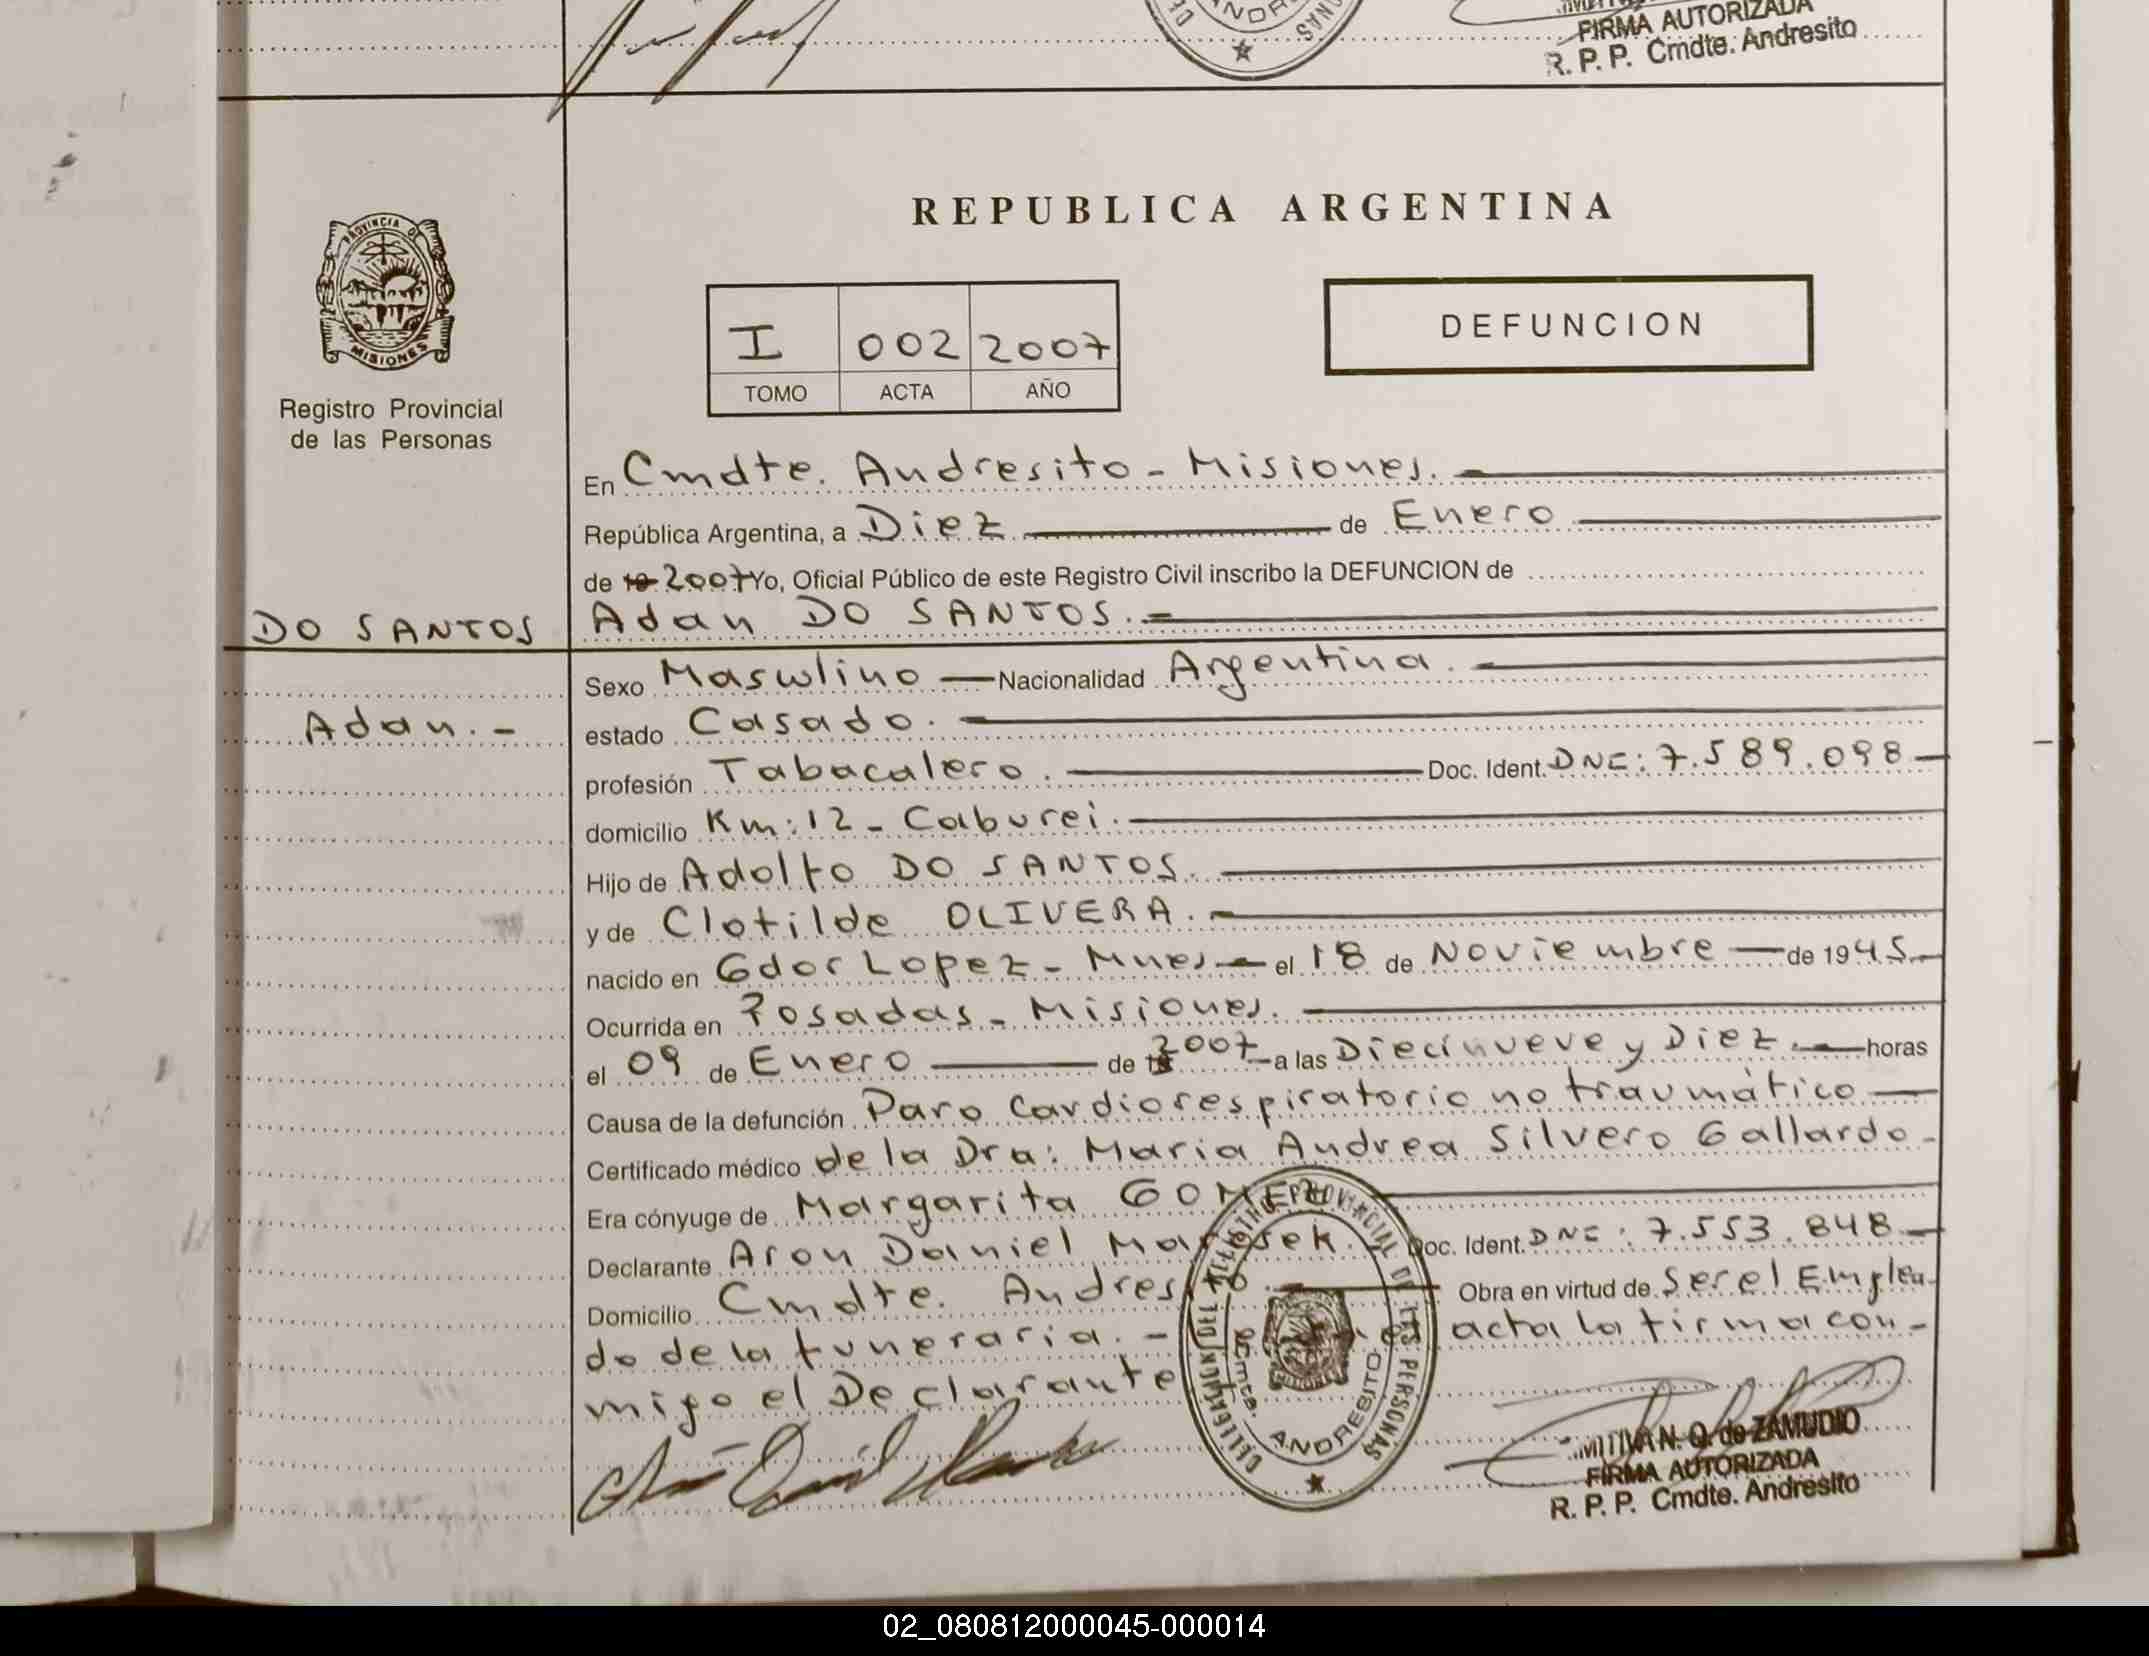 FIRMA AUTORIZADA
R. P. P. Cmdte. Andresito
PROVINCIA DE
MISIONES
Registro Provincial
de las Personas
REPUBLICA ARGENTINA
I 002 2007
TOMO ACTA AÑO
DEFUNCION
En Cmdte. Andresito - Misiones. -
República Argentina, a Diez de Enero
de 19 2007 Yo, Oficial Público de este Registro Civil inscribo la DEFUNCION de
DO SANTOS
Adan DO SANTOS. -
Sexo Masculino Nacionalidad Argentina. -
Adan. -
estado Casado. -
profesión Tabacalero. Doc. Ident. DNI: 7.589.098
domicilio Km: 12 - Caburei. -
Hijo de Adolfo DO SANTOS. -
y de Clotilde OLIVERA. -
nacido en Gdor Lopez - Mnes - el 18 de Noviembre de 1945. -
Ocurrida en Posadas - Misiones. -
el 09 de Enero de 2007 a las Diecinueve y Diez. - horas
Causa de la defunción Paro Cardiorespiratorio no traumático
Certificado médico de la Dra: Maria Andrea Silvero Gallardo -
Era cónyuge de Margarita GOMEZ
Declarante Aron Daniel Doc. Ident. DNI: 7.553.848
Domicilio Cmdte. Andresito. - Obra en virtud de Ser el Emplea-
do de la funeraria. - acta la firma con-
migo el Declarante
DELEGACION DEL REGISTRO PROVINCIAL DE LAS PERSONAS
Cmte. ANDRESITO
N. Q. de ZAMUDIO
FIRMA AUTORIZADA
R. P. P. Cmdte. Andresito
02_080812000045-000014